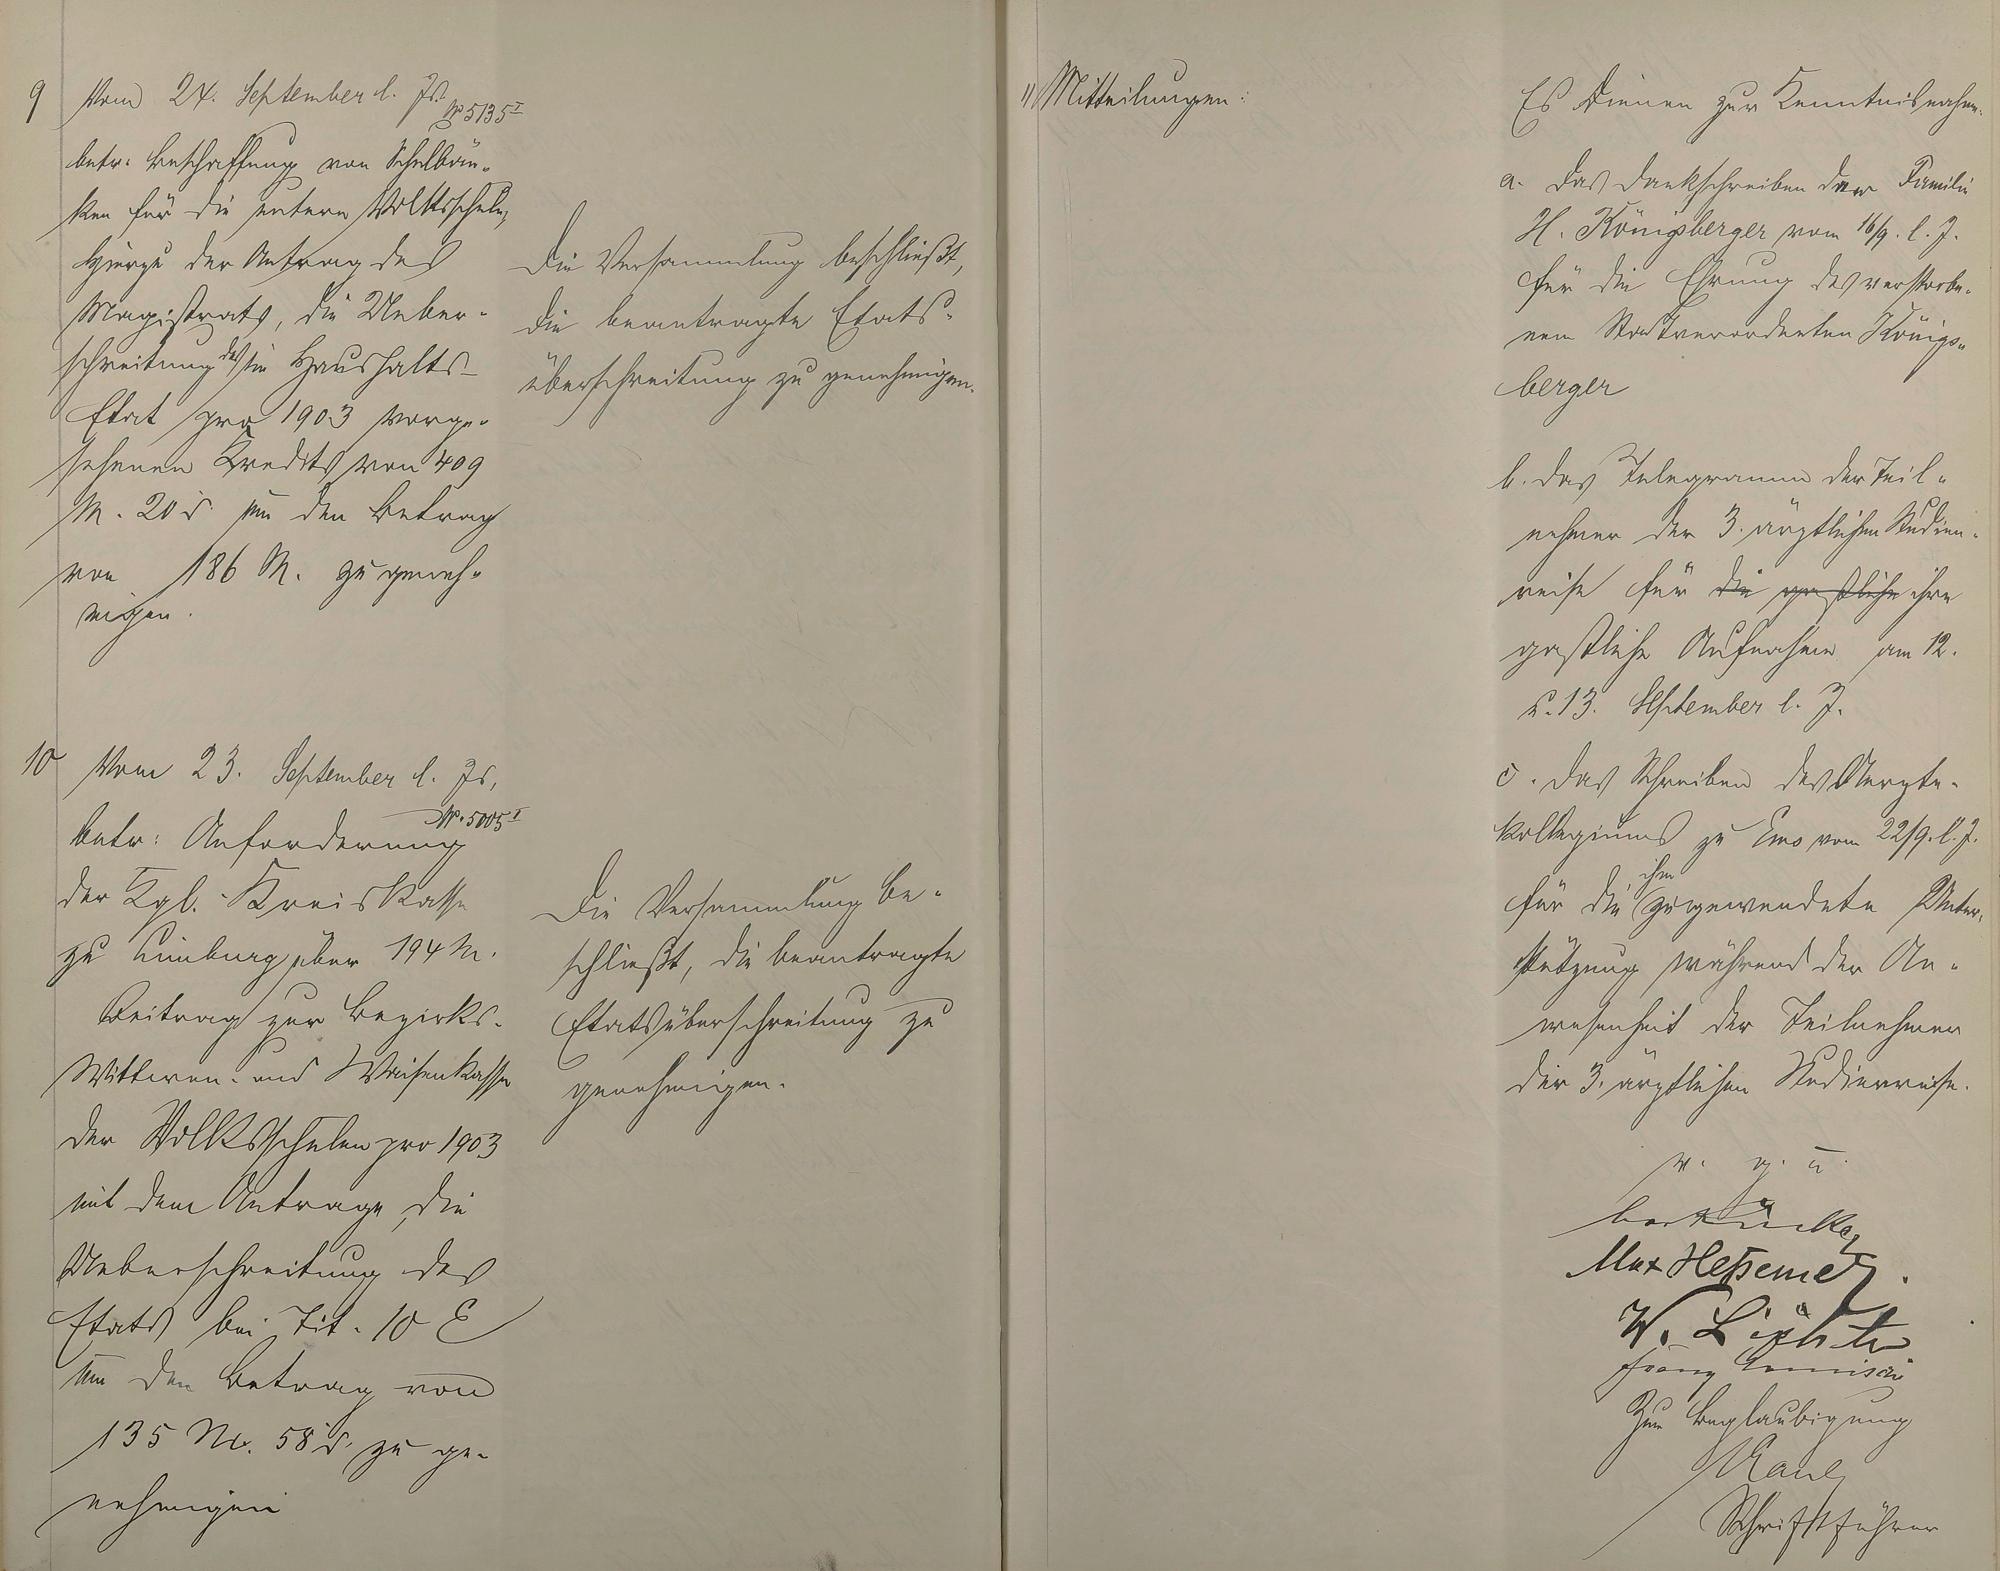 9 Vom 24. September l. Js.
No 5135 I
betr. Beschaffung von Schulbän-
ken für die untere Volksschule,
Hierzu der Antrag des
Magistrats, die Ueber-
schreitung des im Haushalts-
Etat pro 1903 vorge-
sehenen Kredits von 409
M. 20 d um den Betrag
von 186 M. zu geneh-
migen.
Die Versammlung beschließt,
die beantragte Etats-
überschreitung zu genehmigen.
10 Vom 23. September l. Js,
No. 5005 I
betr: Anforderung
der Kgl. Kreiskasse
zu Limburg über 194 M.
Beitrag zur Bezirks-
Wittwen- und Waisenkasse
der Volksschulen pro 1903
mit dem Antrage, die
Ueberschreitung des
Etats bei Tit. 10 E
um den Betrag von
135 M. 58 d. zu ge-
nehmigen
Die Versammlung be-
schließt, die beantragte
Etatsüberschreitung zu
genehmigen.
11 Mitteilungen:
Es dienen zur Kenntnisnahme.
a. das Dankschreiben der Familie
H. Königsberger vom 16/9. l. J.
für die Ehrung des verstorbe-
nen Stadtverordneten Königs-
berger
b. das Telegramm der Teil-
nehmer der 3. ärztlichen Studien-
reise für die gastliche ihre
gastliche Aufnahme am 12.
u. 13. September l. J.
c. das Schreiben des Aerzte-
kollegiums zu Ems vom 22/9. l. J.
für die ihm zugewendete Unter-
stützung während der An-
wesenheit der Teilnehmer
der 3. ärztlichen Studienreise.
v. g. u.
Max Heßemer.
W.
Franz
Zur Beglaubigung
Schriftführer